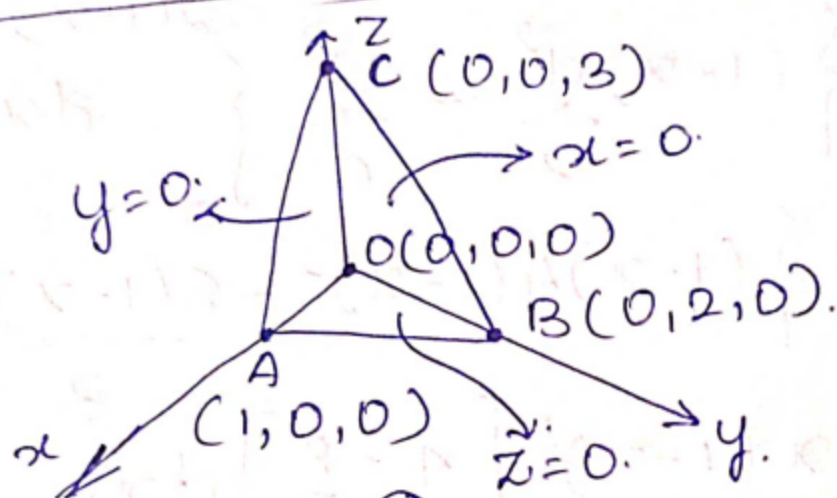 z
C (0,0,3)
x=0.
y=0.
O(0,0,0)
B(0,2,0).
A
(1,0,0)
x
z=0.
y.